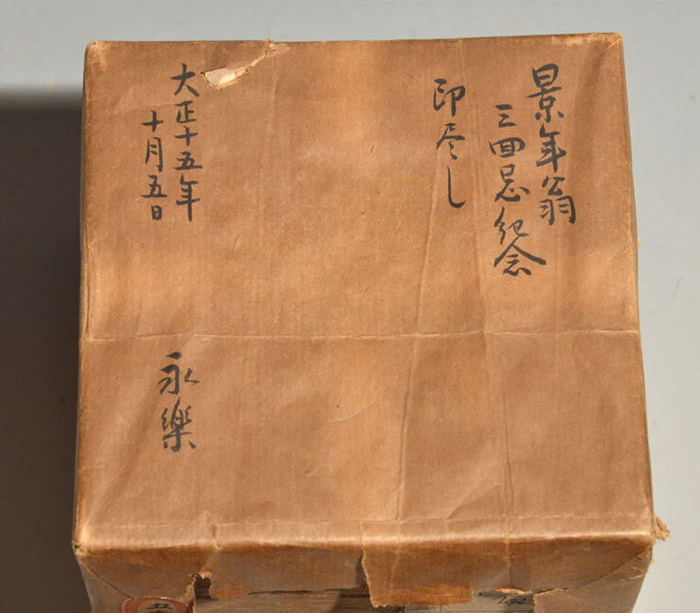 景年翁
三回忌紀念
印尽し
大正十五年
十月五日
永樂